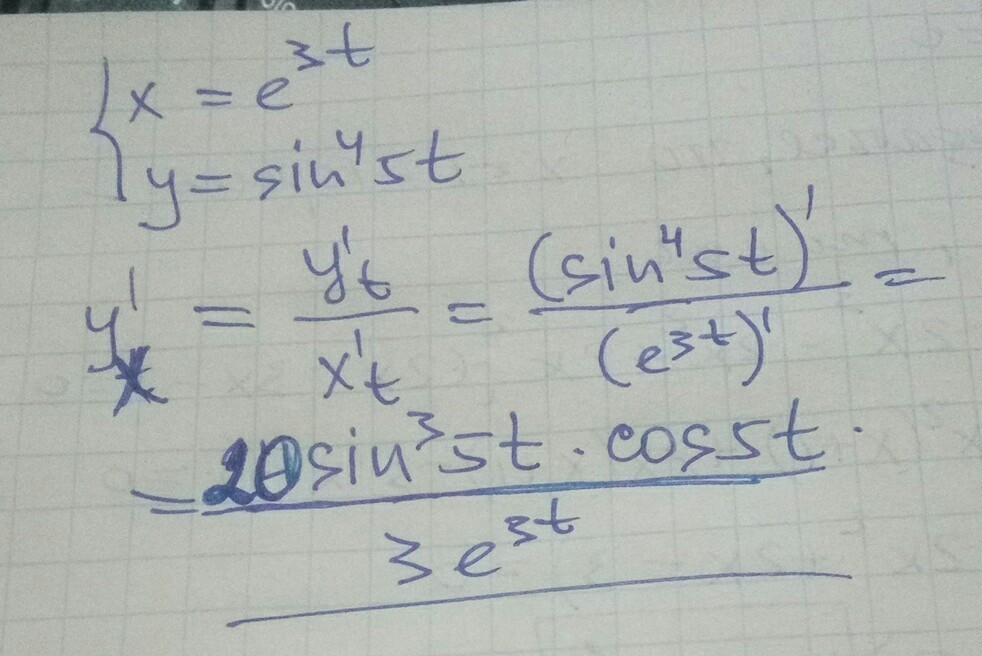 { x = e^{3t}
y = sin^4 5t
y'_x = y't / x't = (sin^4 5t)' / (e^{3t})' =
= 20 sin^3 5t · cos 5t · / 3e^{3t}